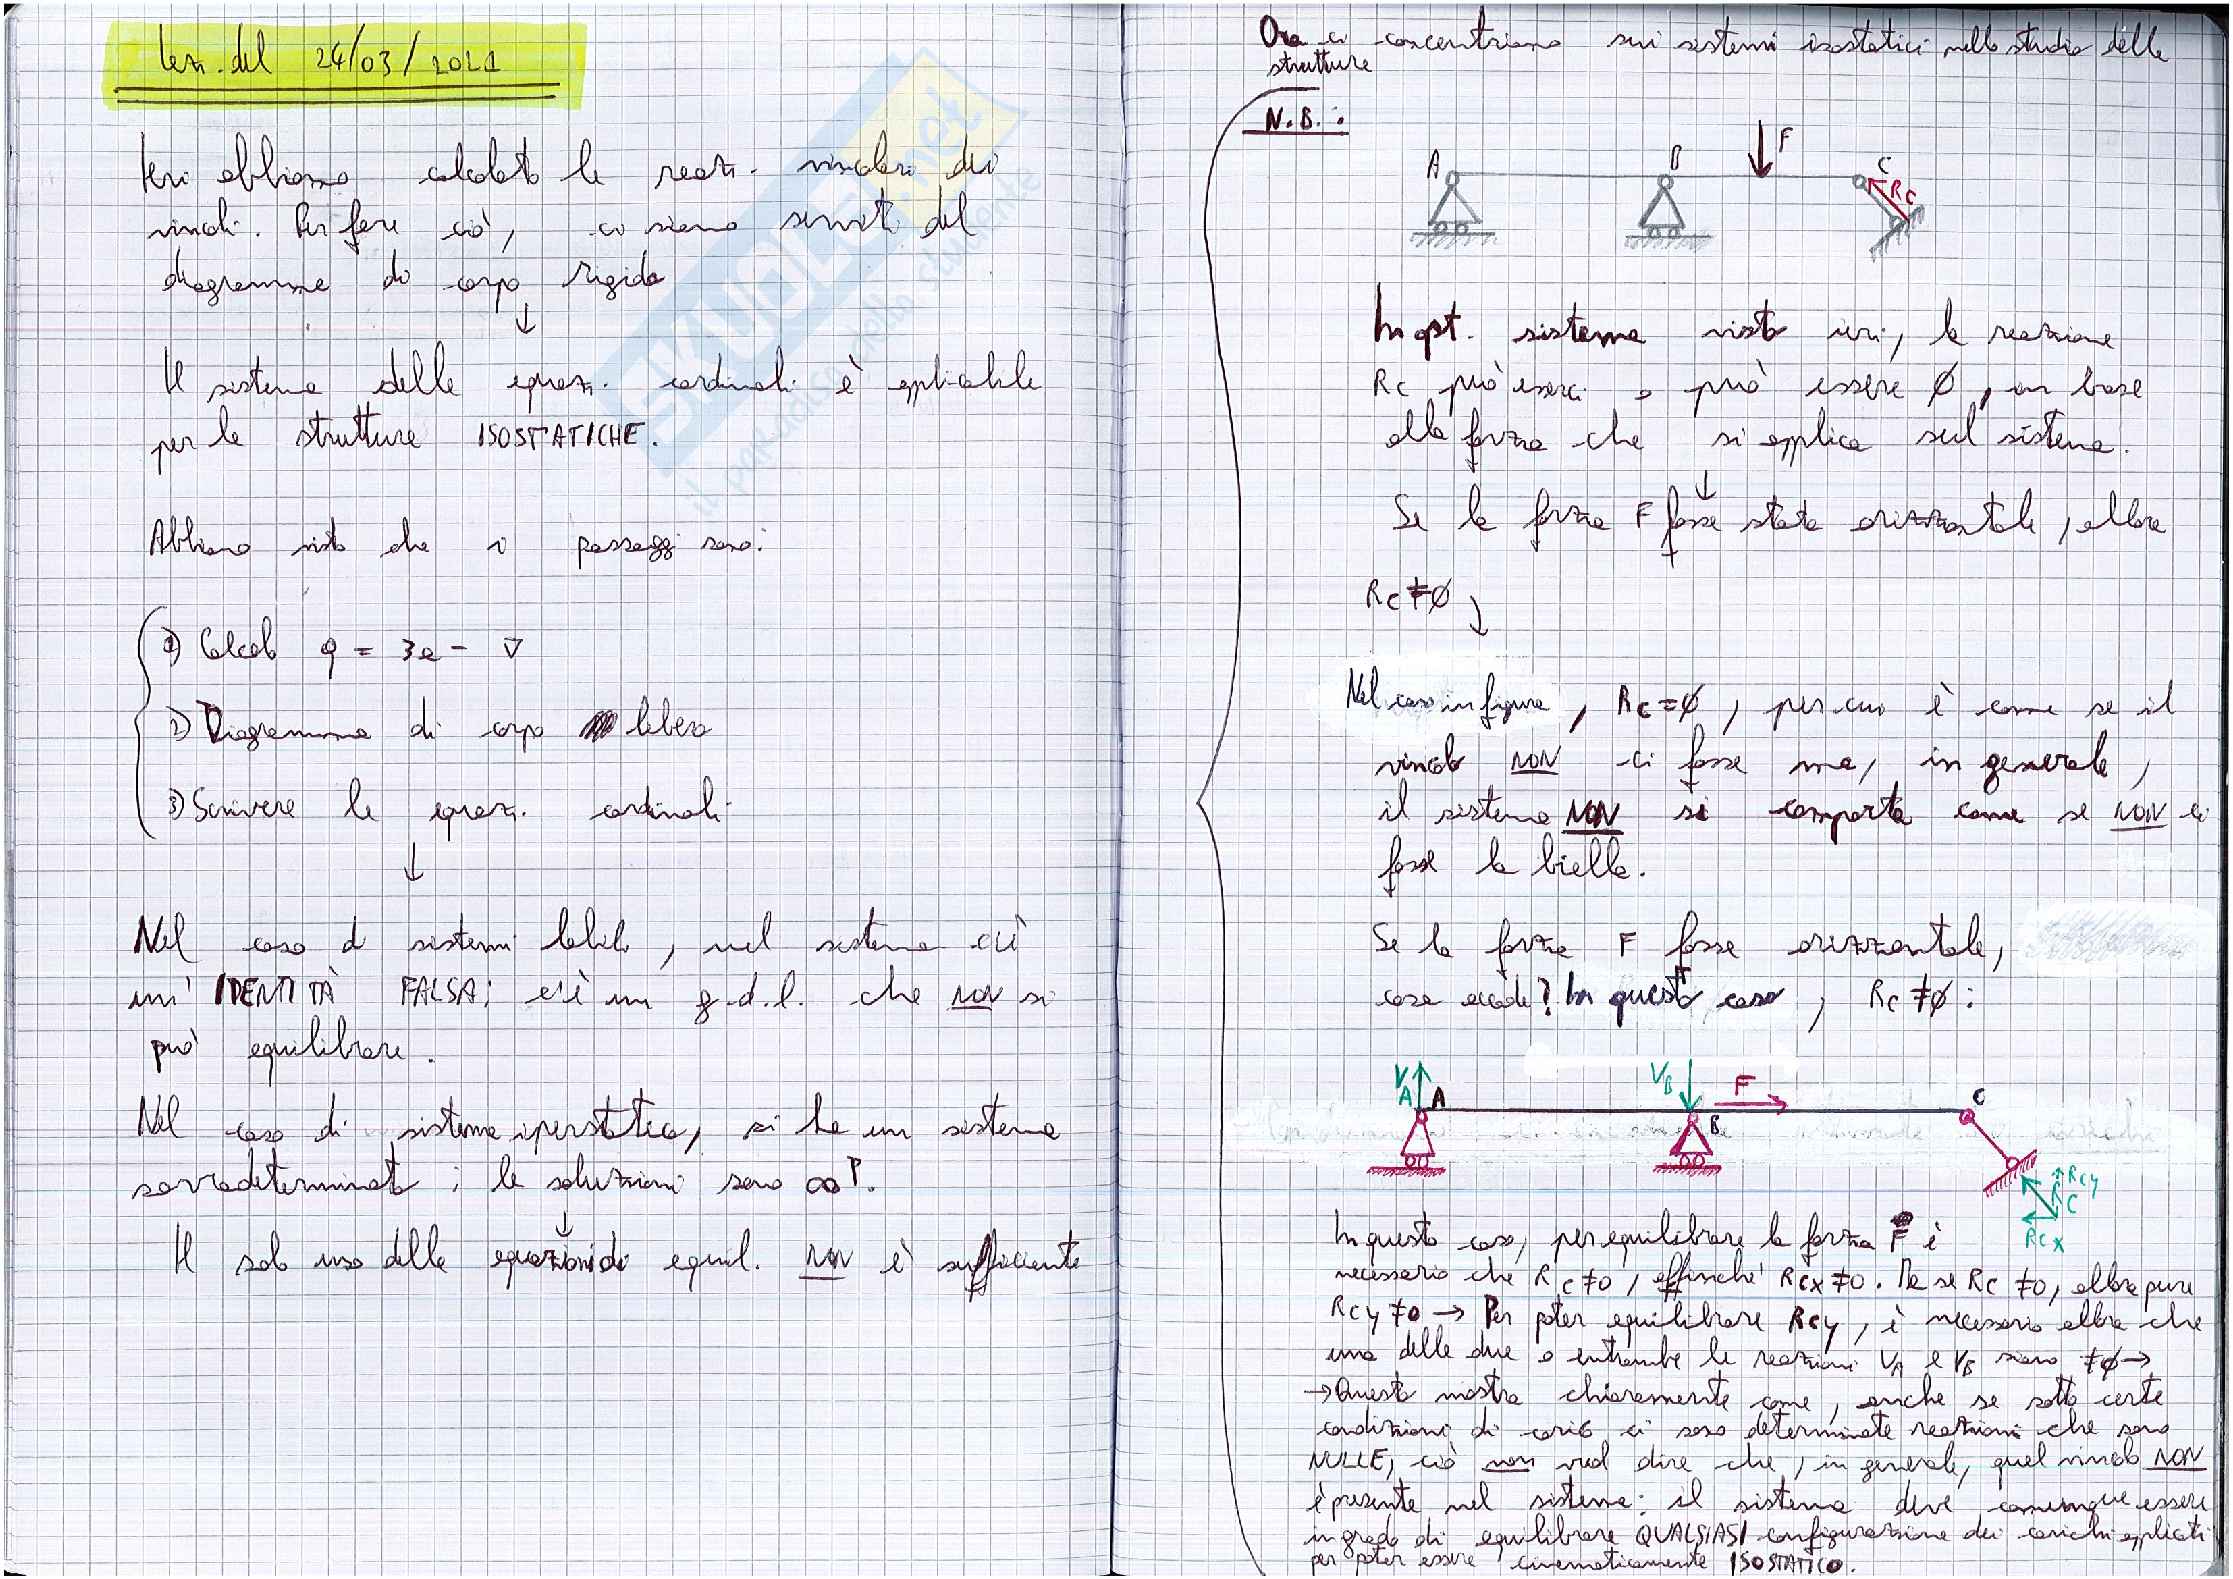 Lez. del 24/03/2021
Ieri abbiamo calcolato le reaz. vincolari dei
vincoli. Per fare ciò, ci siamo serviti del
diagramma di corpo rigido
↓
Il sistema delle equaz. cardinali è applicabile
per le strutture ISOSTATICHE.
Abbiamo visto che i passaggi sono:
1) Calcolo q = 3a - v
2) Diagramma di corpo libero
3) Scrivere le equaz. cardinali
↓
Nel caso di sistemi labili, nel sistema c'è
un' IDENTITÀ FALSA; c'è un g.d.l. che NON si
può equilibrare.
Nel caso di sistema iperstatico, si ha un sistema
sovradeterminato; le soluzioni sono ∞^P.
↓
Il solo uso delle equazioni di equil. NON è sufficiente
Ora ci concentriamo sui sistemi isostatici nello studio delle
strutture
N.B.:
A B F C RC
In qst. sistema visto ieri, la reazione
RC può esserci o può essere Ø, in base
alla forza che si applica sul sistema.
↓
Se la forza F fosse stata orizzontale, allora
RC ≠ Ø
Nel caso in figura, RC = Ø, per cui è come se il
vincolo NON ci fosse ma, in generale,
il sistema NON si comporta come se NON ci
fosse la biella.
Se la forza F fosse orizzontale,
cosa accade? In questo caso, RC ≠ Ø:
VA A VB B F C
RCy
RC
RCx
In questo caso, per equilibrare la forza F è
necessario che RC ≠ 0, affinché RCx ≠ 0. Ma se RC ≠ 0, allora pure
RCy ≠ 0 → Per poter equilibrare RCy, è necessario allora che
una delle due o entrambe le reazioni VA e VB siano ≠ Ø →
→ Questo mostra chiaramente come, anche se sotto certe
condizioni di carico ci sono determinate reazioni che sono
NULLE, ciò non vuol dire che, in generale, quel vincolo NON
è presente nel sistema: il sistema deve comunque essere
in grado di equilibrare QUALSIASI configurazione dei carichi applicati
per poter essere cinematicamente ISOSTATICO.
SKUOLA.net
il portale dello studente